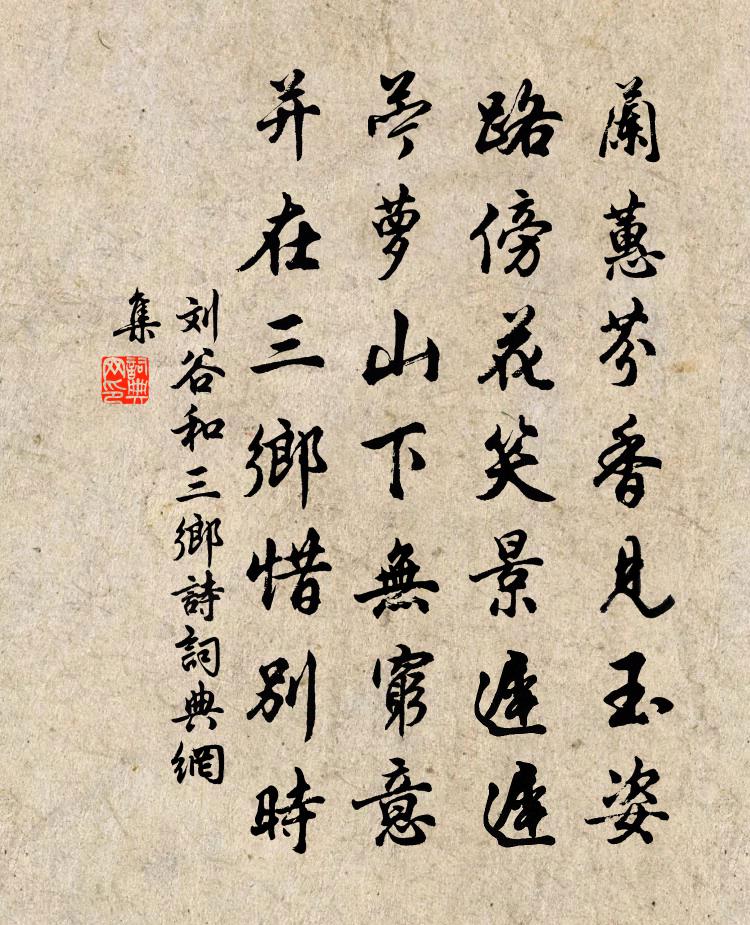 蘭蕙芬香見玉姿
路傍花笑景遲遲
苎萝山下無窮意
并在三鄉惜別時
刘谷和三鄉詩詞典網
集
詞典
网印